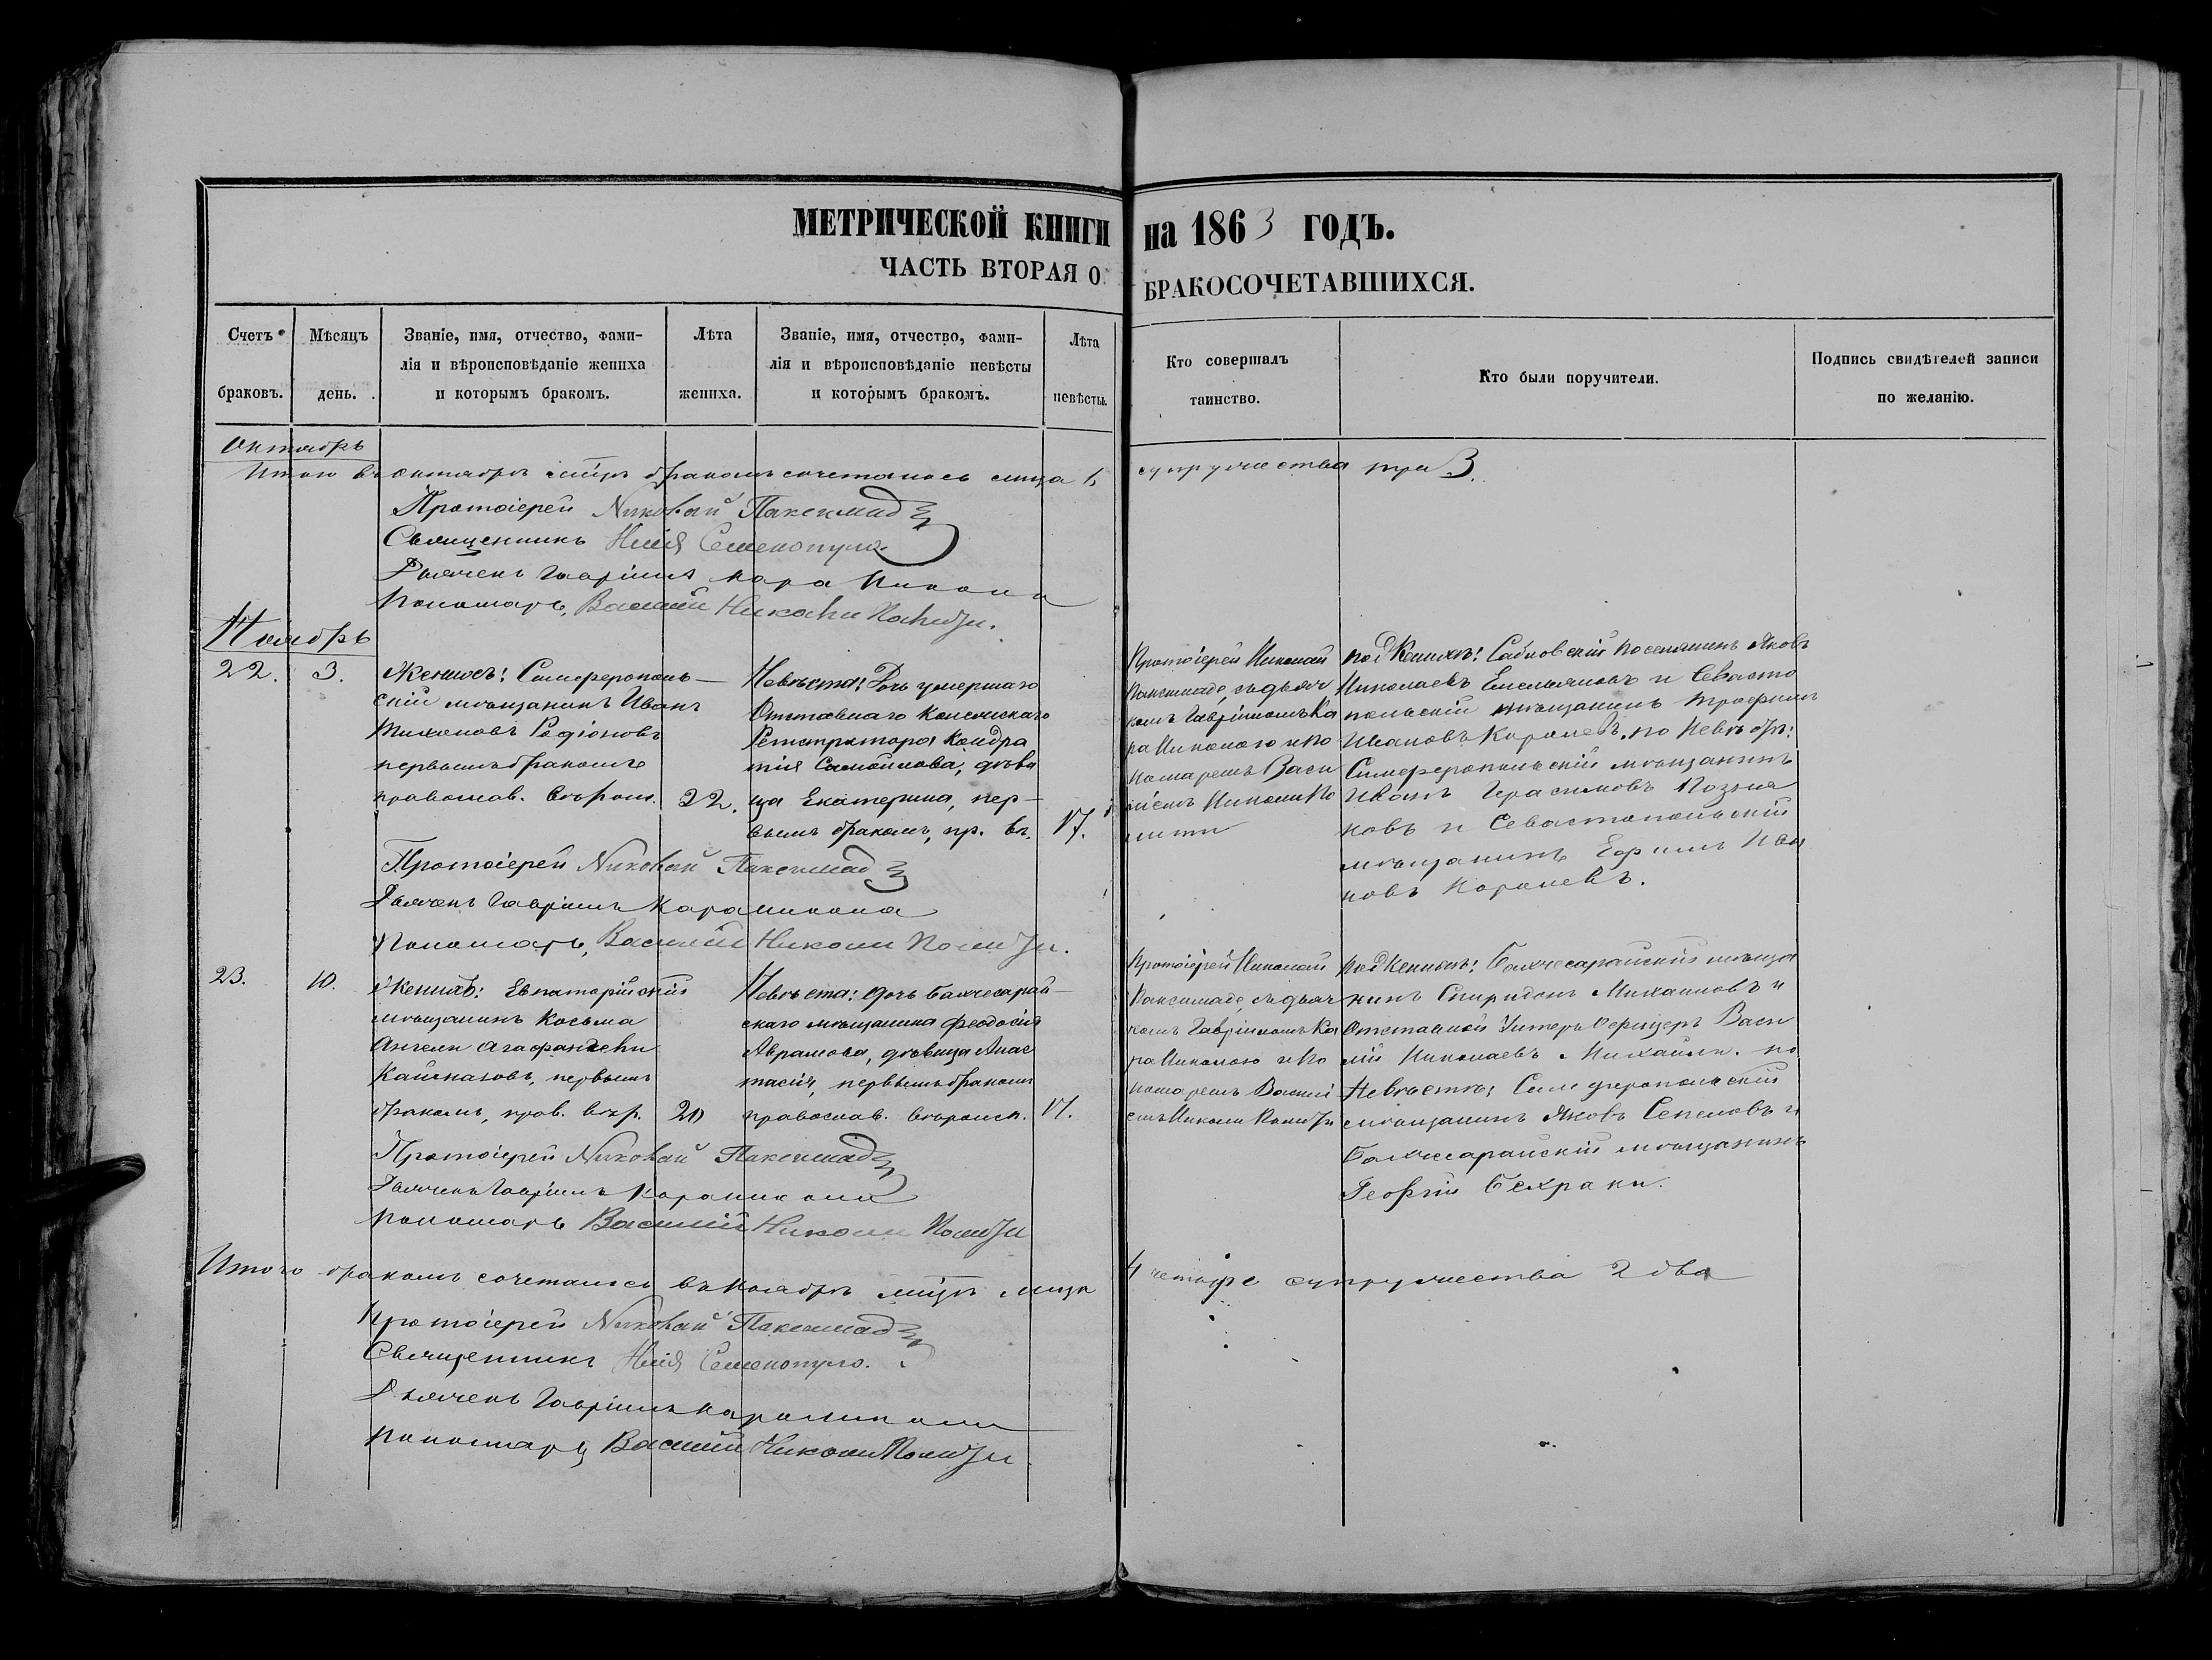 МЕТРИЧЕСКОЙ КНИГИ на 1863 ГОДЪ.
ЧАСТЬ ВТОРАЯ О БРАКОСОЧЕТАВШИХСЯ.
Счетъ браковъ.
Мѣсяцъ день.
Званіе, имя, отчество, фами-
лія и вѣроисповѣданіе жениха
и которымъ бракомъ.
Лѣта жениха.
Званіе, имя, отчество, фами-
лія и вѣроисповѣданіе невѣсты
и которымъ бракомъ.
Лѣта невѣсты.
Кто совершалъ
таинство.
Кто были поручители.
Подпись свидѣтелей записи
по желанію.
Октябрь
Итого въ октябрѣ м̃цѣ бракомъ сочеталось лица 6 супружества три 3.
Протоіерей Николай Паксимад
Священникъ Илія Семенопуло.
Дьячекъ Гавріилъ Кара Никола
Пономарь, Василій Николи
Ноябрь
22.
3.
Женихъ: Симферополь-
скій мѣщанинъ Иванъ
Тихоновъ Родіоновъ
первымъ бракомъ
православ. вѣроис.
22.
Невѣста: Дочь умершаго
Отставнаго Колежскаго
Регистратора Кондра
тія Самойлова, дѣви
ца Екатерина, пер-
вымъ бракомъ, пр. вѣ.
17.
Протоіерей Николай
Паксимаде, съ дьяч
комъ Гавріиломъ Ка
ра Николою и По
номаремъ Васи
ліемъ Николи По
под Женихѣ: Сабловскій поселянинъ Яковъ
Николаевъ Емельяновъ и Севасто
польскій мѣщанинъ Трофимъ
Ивановъ Королевъ. по Невѣстѣ:
Симферопольскій мѣщанинъ
Иванъ Герасимовъ Позня
ковъ и Севастопольскій
мѣщанинъ Ефимъ Ива
новъ Королевъ.
Протоіерей Николай Паксимад
Дьячекъ Гавріилъ Кара Никола
Пономарь, Василій Николи
23.
10.
Женихъ: Евпаторійскій
мѣщанинъ Косьма
Ангели
первымъ
бракомъ, прав. вѣр.
20
Невѣста: дочь Бахчесарай-
скаго мѣщанина Феодосія
Аврамова, дѣвица Анас
тасія, первымъ бракомъ
православ. вѣроисп.
17.
Протоіерей Николай
Паксимаде, съ дьяч
комъ Гавріиломъ Ка
ра Николою и По
номаремъ Василі
емъ Николи
под Женихѣ: Бахчесарайскій мѣща
нинъ Спиридонъ Михаиловъ и
Отставной Унтеръ Офицеръ Васи
лій Николаевъ Михайли. по
Невѣстѣ: Симферопольскій
мѣщанинъ Яковъ и
Бахчесарайскій мѣщанинъ
Георгій
Протоіерей Николай Паксимад
Дьячекъ Гавріилъ Кара Николи
Пономарь Василій Николи
Итого бракомъ сочеталось въ Ноябрѣ м̃цѣ лица 4 четыре супружества 2 два
Протоіерей Николай Паксимад
Священникъ Илія Семенопуло.
Дьячекъ Гавріилъ Кара Николи
Пономарь Василій Николи